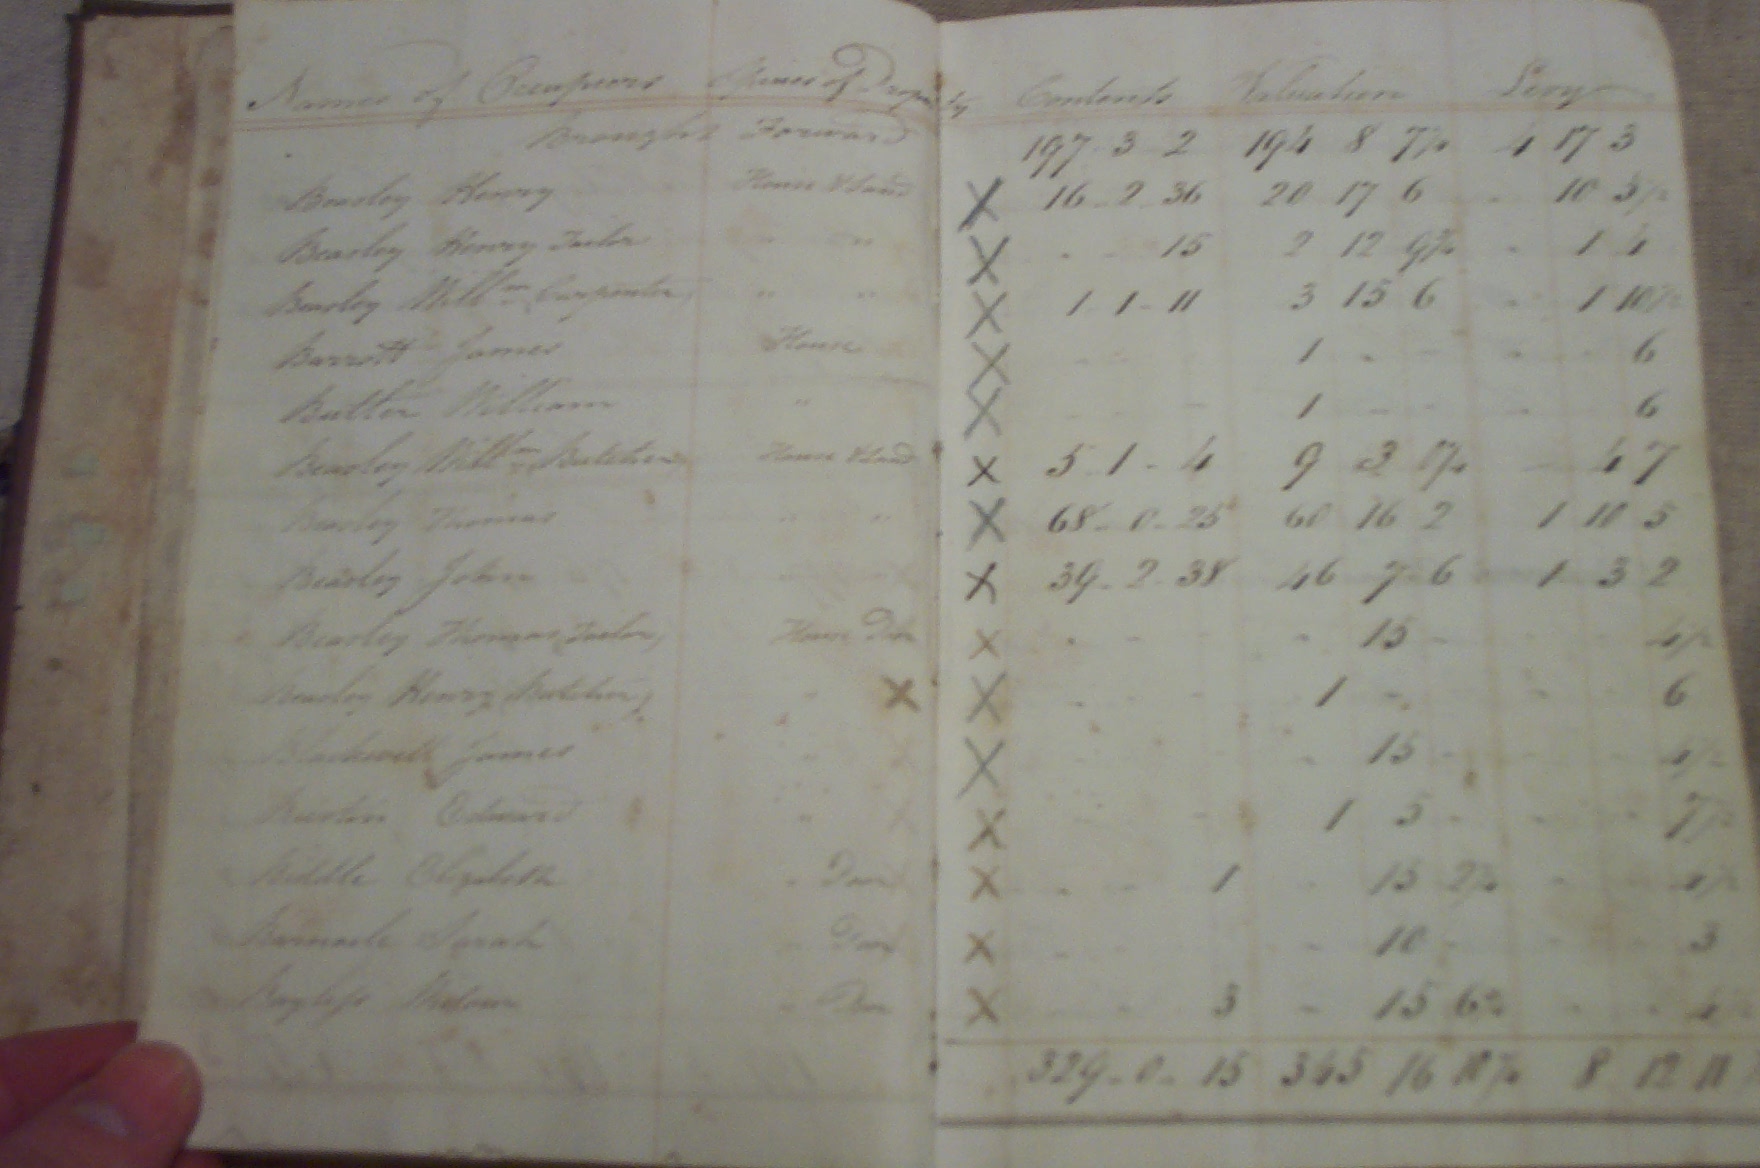 Names of Occupiers Names of Property Contents Valuation Levy
Brought Forward 197 3 2 194 8 7½ 4 17 3
Beasley Henry House & Land X 16 - 2 - 36 20 17 6 - 10 5½
Beasley Henry Tailor " " X - - 15 2 12 9¾ - 1 4
Beasley Willm Carpenter " " X 1 - 1 - 11 3 15 6 - 1 10½
Barrott James House X - - 1 - - - - 6
Butler William " X - - - 1 - - - 6
Beasley Willm Butcher House & Land X 5 - 1 - 4 9 3 - 4 7
Beasley Thomas " " X 68 - 0 - 25 60 16 2 1 10 5
Beasley John X 39 - 2 - 38 46 7 6 1 3 2
Beasley Thomas Tailor House X - - - - 15 - - - 4½
Beasley Henry Butcher " X X - - - 1 - - - 6
Blackwell James " X - 15 - - 4½
Edward " X - - - 1 5 - - - 7½
Biddle Elizabeth " X - - 1 - 15 2½ - - 4½
Sarah " X - - - - 10 - - - 3
Bayliss Widow " X - - 3 - 15 6¾ - - 4½
329 - 0 - 15 345 16 8 12 11